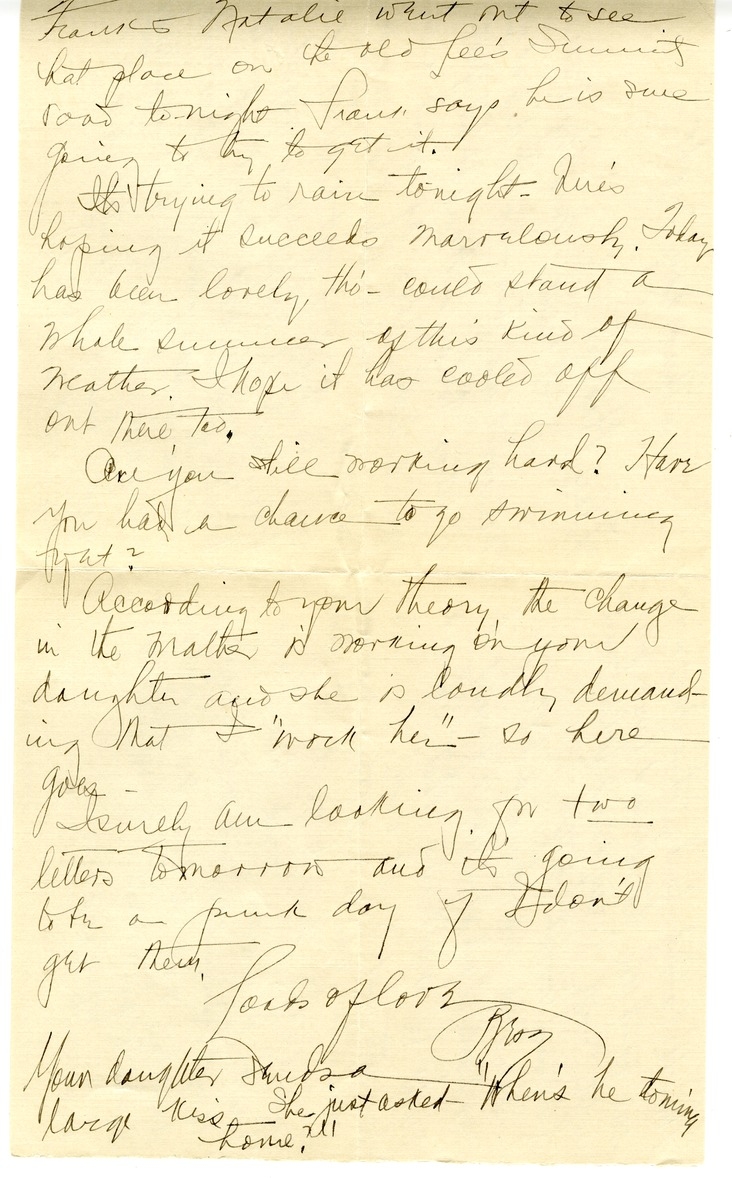 Frank & Natalie went out to see
that place on the old Lee's Summit
road to-night. Frank says he is sure
going to try to get it.
It's trying to rain tonight - here's
hoping it succeeds marvelously. Today
has been lovely, tho' - could stand a
whole summer of this kind of
weather. I hope it has cooled off
out there, too.
Are you still working hard? Have
you had a chance to go swimming
yet?
According to your theory, the change
in the weather is working on your
daughter and she is loudly demand-
ing that I "work her" - so here
goes -
I surely am looking for two
letters tomorrow and it's going
to be a punk day if I don't
get them.
Loads of love
Bess
Your daughter sends a
large kiss. She just asked "When's he coming
home?"!!